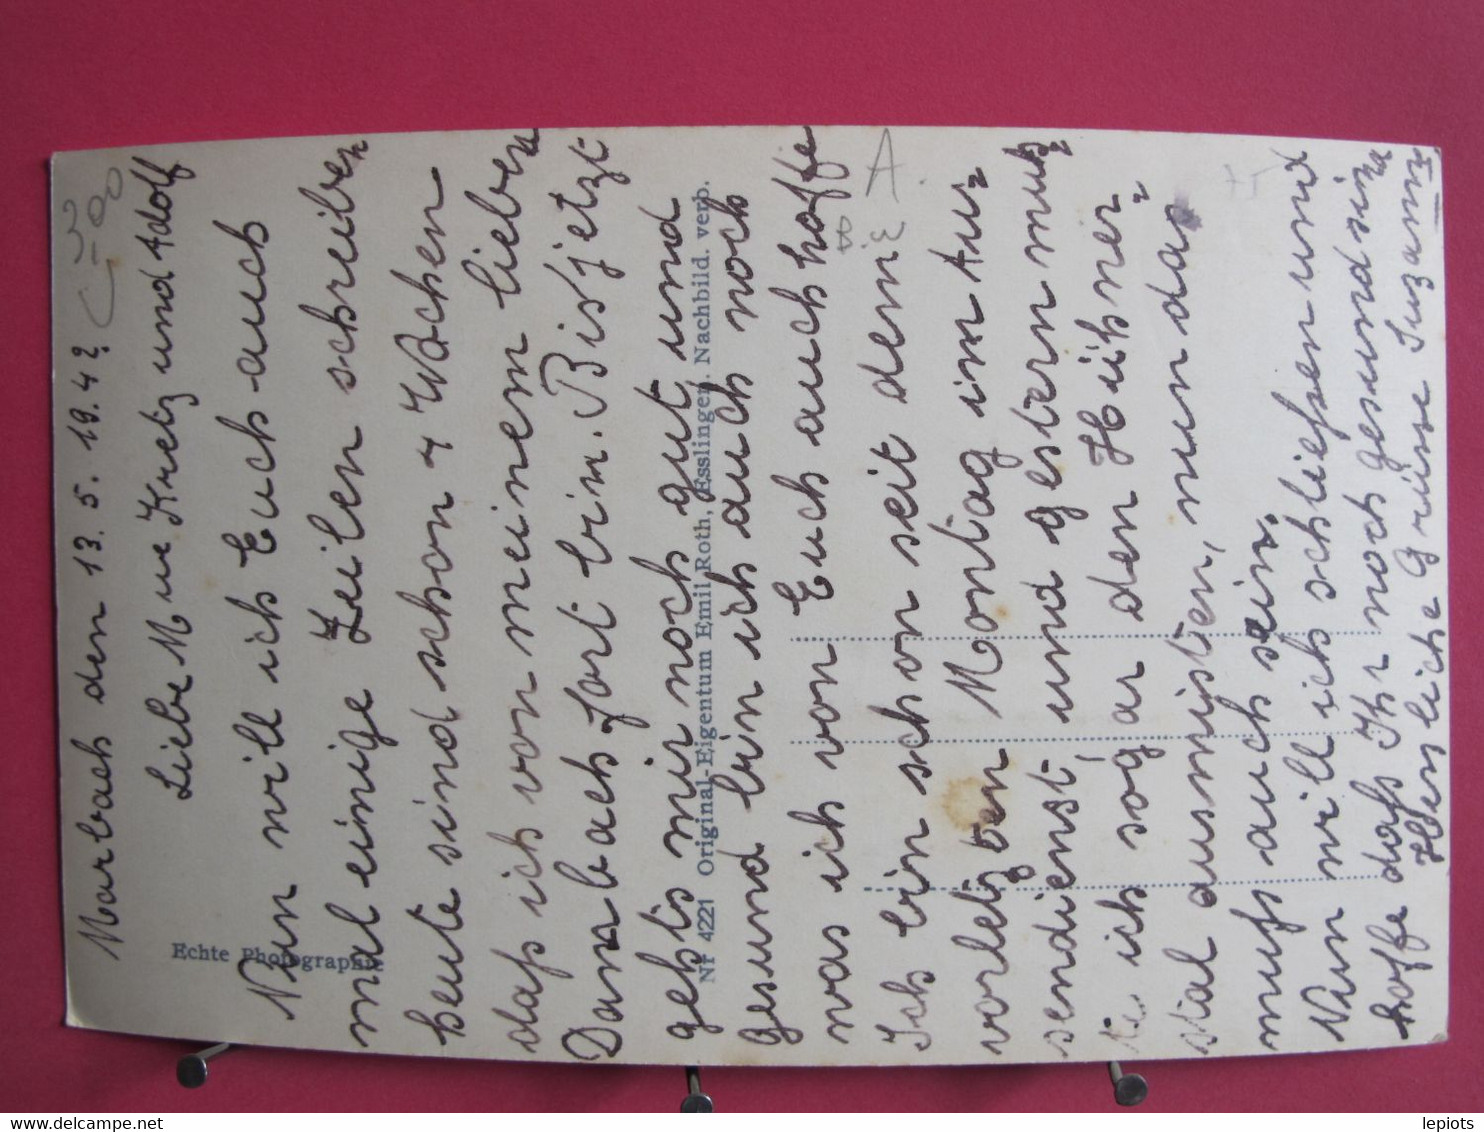 Marbach den 13. 5. 19.42
Liebe Mue Kretz und Adolf
Nun will ich Euch auch
mal einige Zeilen schreiben
heute sind schon 4 Wochen
daß ich von meinem lieben
Dambach fort bin. Bis jetzt
gehts mir noch gut und
gesund bin ich auch noch
was ich von Euch auch hoffe
Ich bin schon seit dem
vorletzten Montag im Aus=
sendienst, und gestern mußt=
te ich sogar den Hühner=
stal ausmisten, nun das
mufs auch sein.
Nun will ich schliefsen und
hoffe dafs Ihr noch gesund sind
Herzliche Grüsse Suzanne
A.
Echte Photographie
Nr 4221 Original-Eigentum Emil Roth, Esslingen. Nachbild. verb.
www.delcampe.net
lepiots